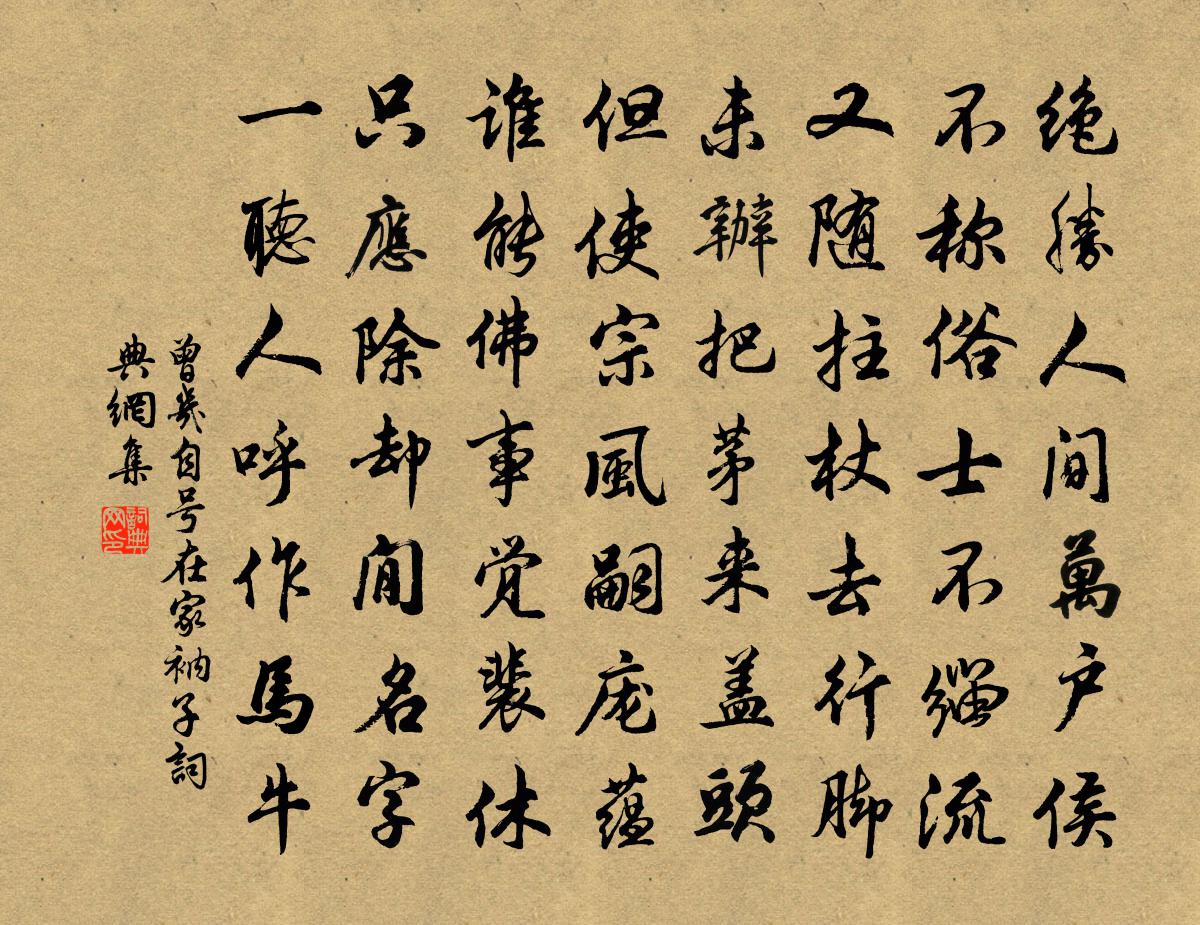 绝勝人间萬户侯
不称俗士不缁流
又随拄杖去行脚
未辦把茅来盖頭
但使宗風嗣庞蕴
谁能佛事觉裴休
只應除却闲名字
一聽人呼作馬牛
曾幾自号在家衲子詞
典網集
詞典网印